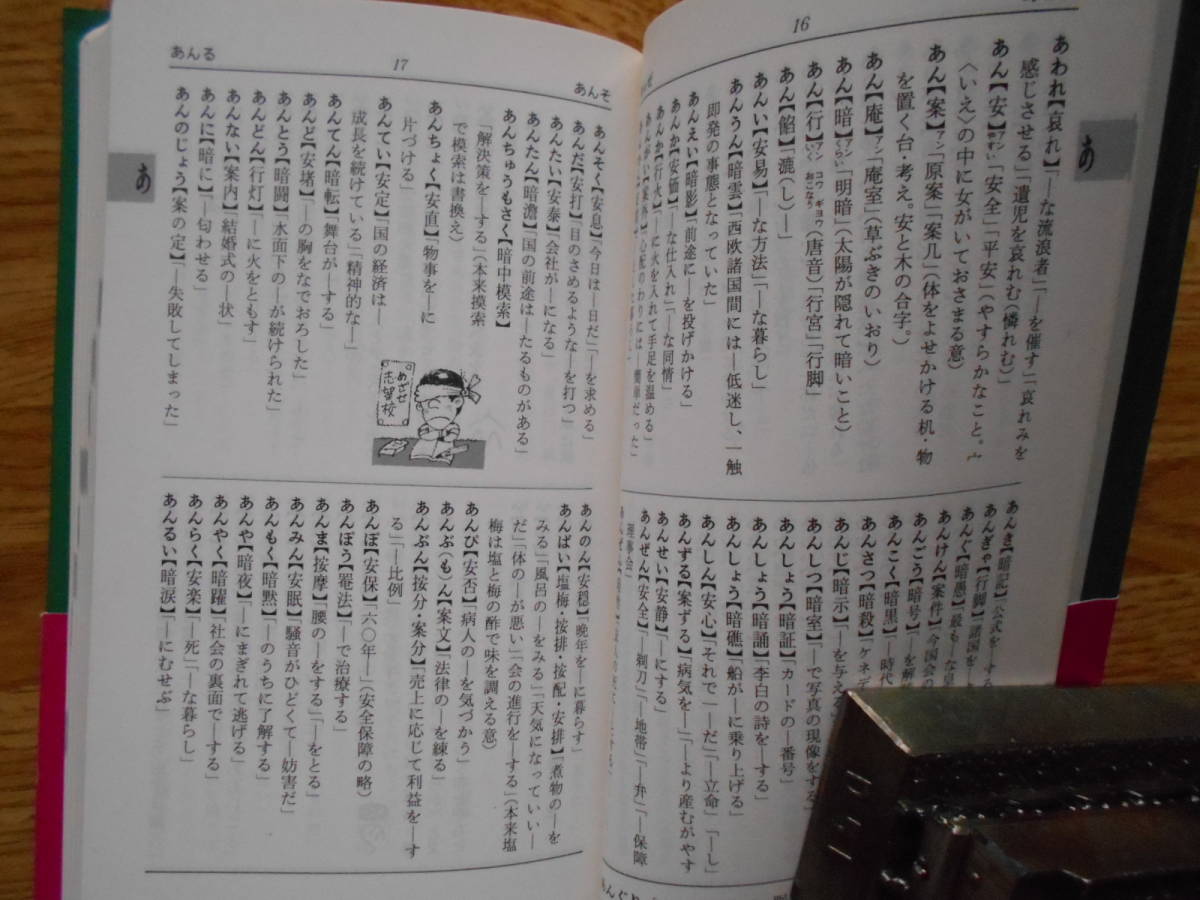 16
あ
あわれ【哀れ】「―な流浪者」「―を催す」「哀れみを
感じさせる」「遺児を哀れむ(憐れむ)」
あん【安】アン やすい「安全」「平安」(やすらかなこと。宀
〈いえ〉の中に女がいておさまる意)
あん【案】アン「原案」「案几」(体をよせかける机・物
を置く台・考え。安と木の合字。)
あん【庵】アン「庵室」(草ぶきのいおり)
あん【暗】アン くらい「明暗」(太陽が隠れて暗いこと)
あん【行】アン コウ ギョウ いく おこなう(唐音)「行宮」「行脚」
あん【餡】「漉(し)―」
あんい【安易】「―な方法」「―な暮らし」
あんうん【暗雲】「西欧諸国間には―低迷し、一触
即発の事態となっていた」
あんえい【暗影】「前途に―を投げかける」
あんか【安価】「―な仕入れ」「―な同情」
あんか【行火】「―に火を入れて手足を温める」
あんがい【案外】「心配のわりには―簡単だった」
あんき【暗記】「公式を―する
あんぎゃ【行脚】「諸国を―
あんぐ【暗愚】「最も―な皇
あんけん【案件】「今国会の
あんごう【暗号】「―を解
あんこく【暗黒】「―時代
あんさつ【暗殺】「ケネデ
あんじ【暗示】「―を与える
あんしつ【暗室】「―で写真の現像をする」
あんしょう【暗証】「カードの―番号」
あんしょう【暗誦】「李白の詩を―する」
あんしょう【暗礁】「船が―に乗り上げる」
あんしん【安心】「それで―だ」「―立命」「―し
あんずる【案ずる】「病気を―」「―より産むがやす
あんせい【安静】「―にする」
あんぜん【安全】「―剃刀」「―地帯」「―弁」「―保障
理事会」
あんそ
17
あんる
あ
あんそく【安息】「今日は―日だ」「―を求める」
あんだ【安打】「目のさめるような―を打つ」
あんたい【安泰】「会社が―になる」
あんたん【暗澹】「国の前途は―たるものがある」
あんちゅうもさく【暗中模索】
「解決策を―する」(本来摸索
で模索は書換え)
あんちょく【安直】「物事を―に
片づける」
あんてい【安定】「国の経済は―
成長を続けている」「精神的な―」
あんてん【暗転】「舞台が―する」
あんど【安堵】「―の胸をなでおろした」
あんとう【暗闘】「水面下の―が続けられた」
あんどん【行灯】「―に火をともす」
あんない【案内】「結婚式の―状」
あんに【暗に】「―匂わせる」
あんのじょう【案の定】「―失敗してしまった」
めざせ
志望校
あんのん【安穏】「晩年を―に暮らす」
あんばい【塩梅・按排・按配・安排】「煮物の―を
みる」「風呂の―をみる」「天気になっていい―
だ」「体の―が悪い」「会の進行を―する」(本来塩
梅は塩と梅の酢で味を調える意)
あんぴ【安否】「病人の―を気づかう」
あんぶ(も)ん【案文】「法律の―を練る」
あんぶん【按分・案分】「売上に応じて利益を―す
る」「―比例」
あんぽ【安保】「六〇年―」(安全保障の略)
あんぽう【罨法】「―で治療する」
あんま【按摩】「腰の―をする」「―をとる」
あんみん【安眠】「騒音がひどくて―妨害だ」
あんもく【暗黙】「―のうちに了解する」
あんや【暗夜】「―にまぎれて逃げる」
あんやく【暗躍】「社会の裏面で―する」
あんらく【安楽】「―死」「―な暮らし」
あんるい【暗涙】「―にむせぶ」